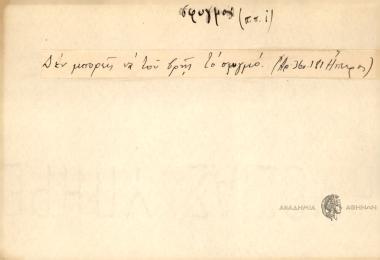 σφυγμός (π.π. 1)
Δέν μπορεῖς νά τοῦ βρῇς τό σφυγμό. (Ἀρ. 361.181 Ἤπειρος)
ΑΚΑΔΗΜΙΑ ΑΘΗΝΩΝ